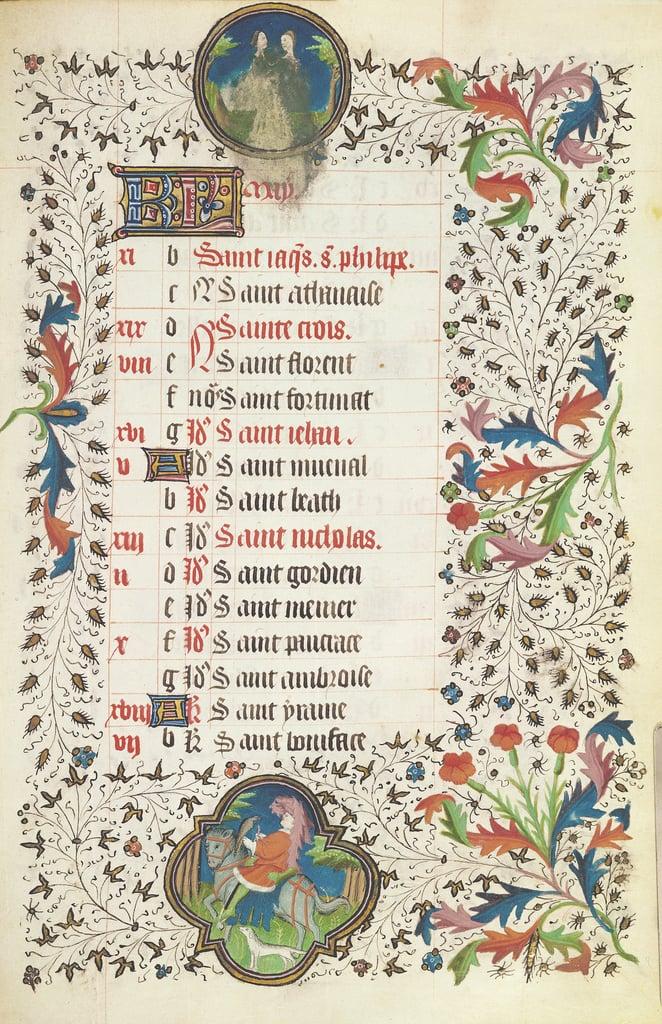 KL May
xi b Saint iaq̃s. s̃. philipe.
c N Saint athanaise
xix d N Sainte crois.
viii e Saint florent
f nõ Saint fortunat
xvi g Id Saint iehan.
v A Id Saint
b Id Saint beath
xiii c Id Saint nicholas.
ii d Id Saint gordien
e Id Saint
x f Id Saint pancrace
g Id Saint ambroise
xviii A K Saint yraine
vii b K Saint boniface